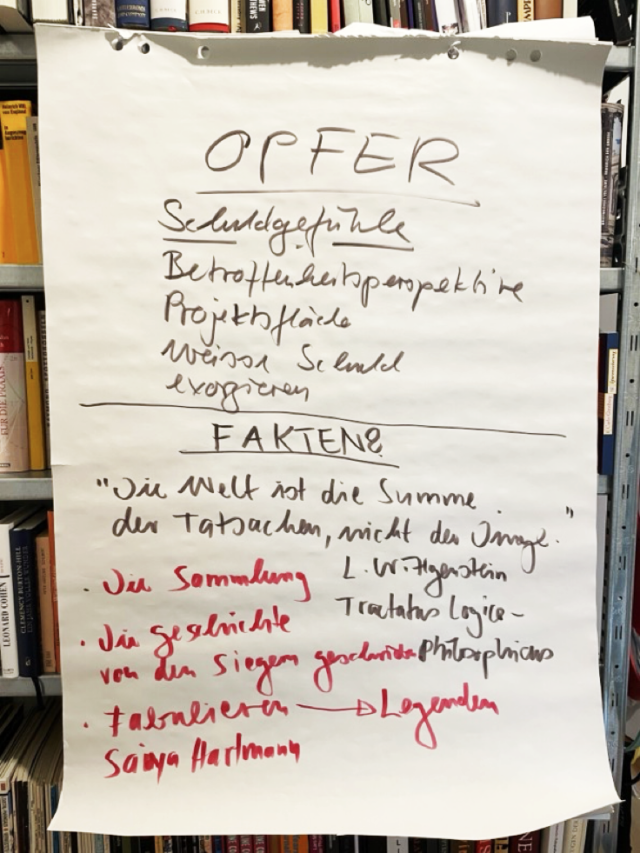 OPFER
Schuldgefühle
Betroffenheitsperspektive
Projektsfläche
Weisse Schuld
exorzieren
FAKTEN?
"Die Welt ist die Summe
der Tatsachen, nicht der Dinge."
L. Wittgenstein
Tractatus Logico-
Philosophicus
· Die Sammlung
· Die Geschichte
von den Siegern geschrieben
· Fabulieren → Legenden
Saidya Hartmann
LEONARD COHEN
CLEMENCY BURTON-HILL
FÜR DIE PRAXIS